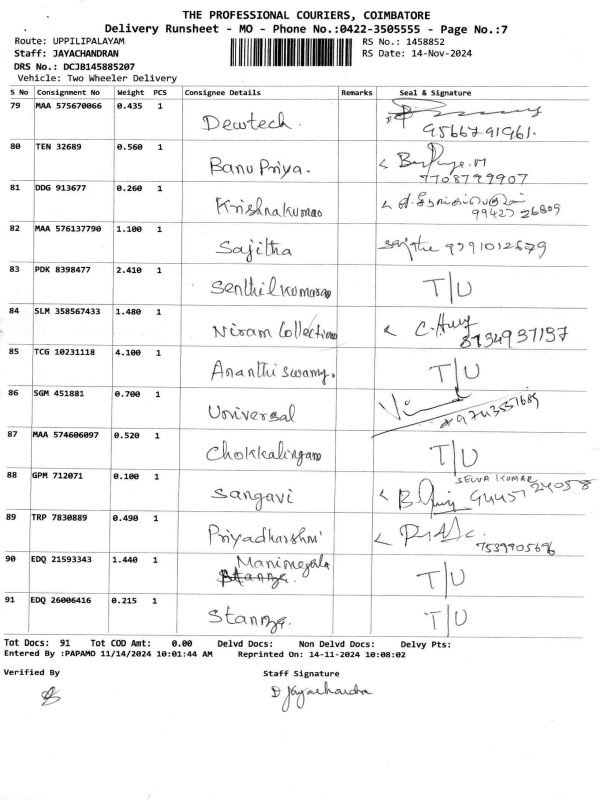 THE PROFESSIONAL COURIERS, COIMBATORE
Delivery Runsheet - MO - Phone No.:0422-3505555 - Page No.:7
Route: UPPILIPALAYAM RS No.: 1458852
Staff: JAYACHANDRAN RS Date: 14-Nov-2024
DRS No.: DCJB145885207
Vehicle: Two Wheeler Delivery
S No Consignment No Weight PCS Consignee Details Remarks Seal & Signature
79 MAA 575670066 0.435 1 Dewtech. 9566791961.
80 TEN 32689 0.560 1 Banu Priya. 7708799907
81 DDG 913677 0.260 1 Krishnakumar 99427 26809
82 MAA 576137790 1.100 1 Sajitha 9791012679
83 PDK 8398477 2.410 1 Senthilkumaran T/U
84 SLM 358567433 1.480 1 Niram Collection 8734937137
85 TCG 10231118 4.100 1 Ananthi swamy. T/U
86 SGM 451881 0.700 1 Universal
87 MAA 574606097 0.520 1 Chokkalingam T/U
88 GPM 712071 0.100 1 Sangavi SELVA KUMAR
89 TRP 7830889 0.490 1 Priyadharshni
90 EDQ 21593343 1.440 1 Manimegala T/U
91 EDQ 26006416 0.215 1 Stanza. T/U
Tot Docs: 91 Tot COD Amt: 0.00 Delvd Docs: Non Delvd Docs: Delvy Pts:
Entered By :PAPAMO 11/14/2024 10:01:44 AM Reprinted On: 14-11-2024 10:08:02
Verified By Staff Signature
D Jayachandra